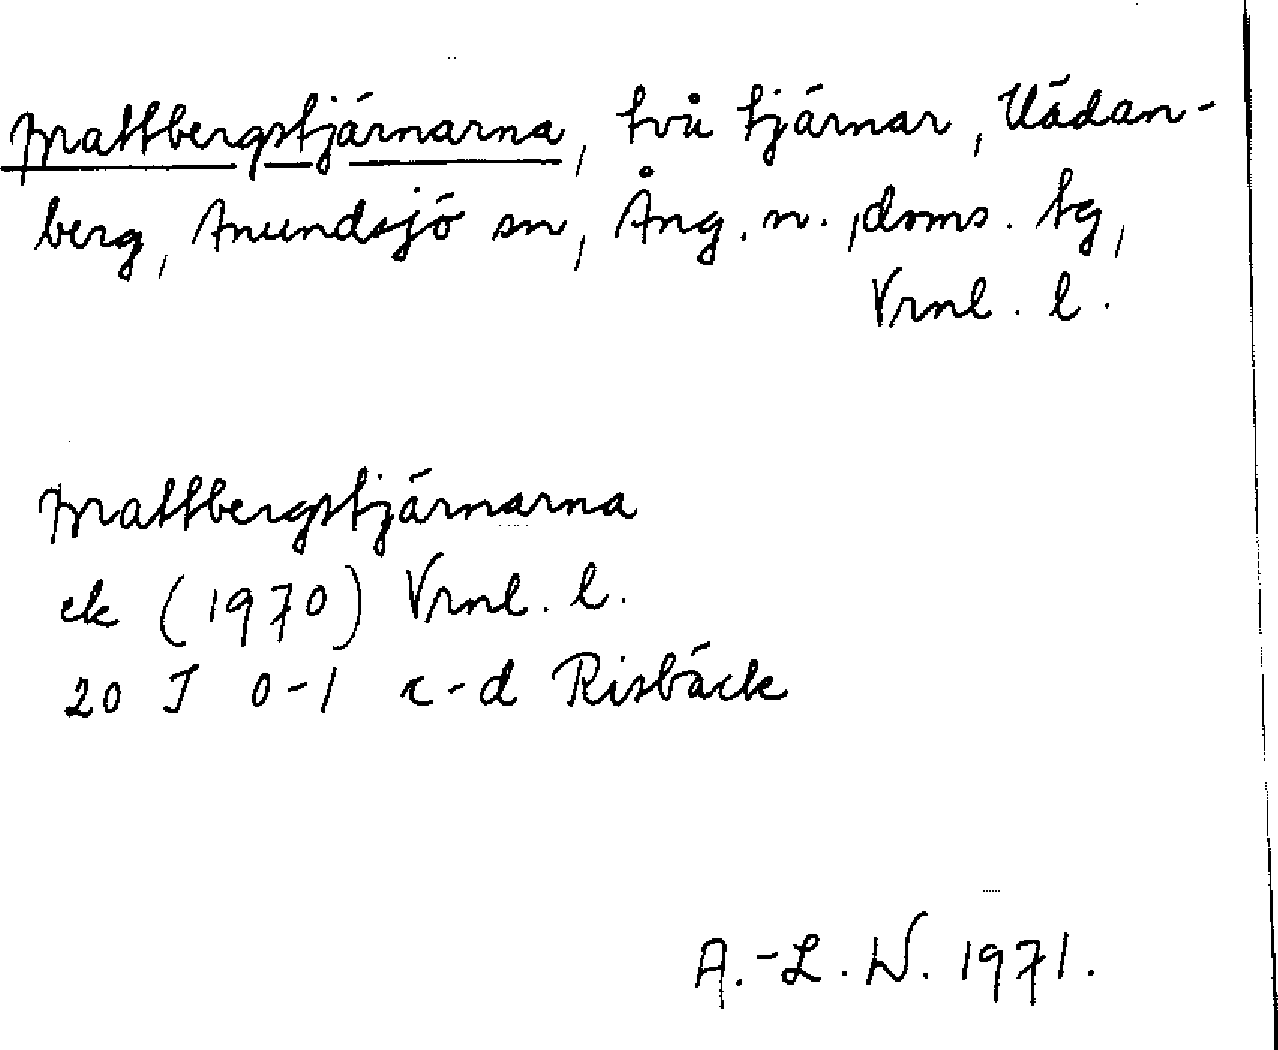 Mattbergstjärnarna, två tjärnar, Uådan-
berg, Anundsjö sn, Ång. n. doms. tg,
Vrnl. l.
Mattbergstjärnarna
ek (1970) Vrnl. l.
20 J 0-1 c-d Risbäck
A.-L. W. 1971.